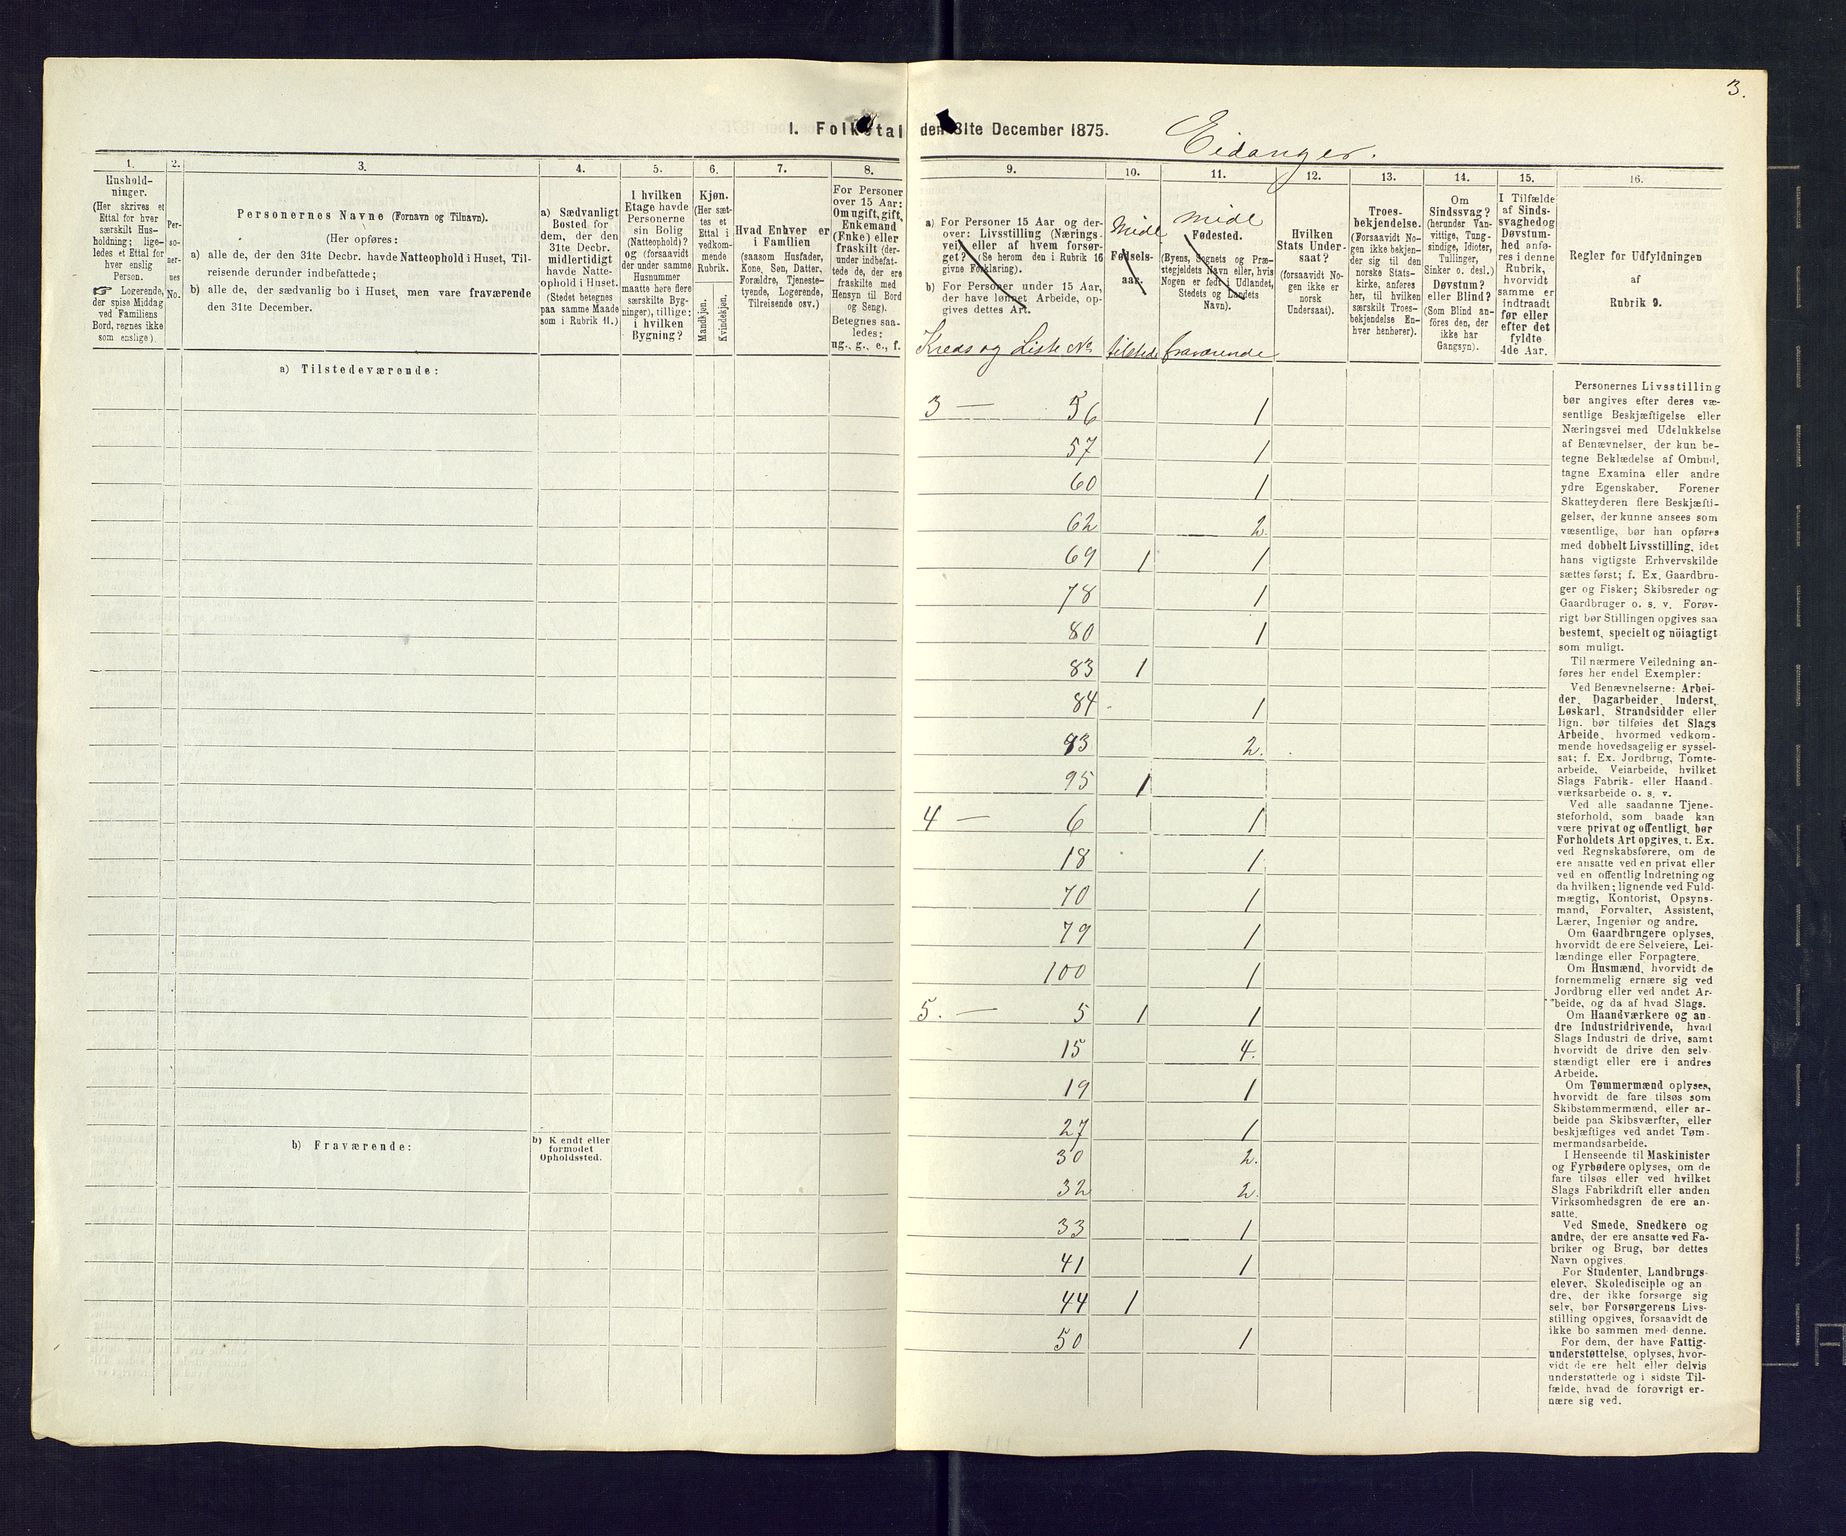 3.
I. Folketal den 31te December 1875.
Eidanger.
1.
Hushold-
ninger.
(Her skrives et
Ettal for hver
særskilt Hus-
holdning; lige-
ledes et Ettal for
hver enslig
Person.
☞ Logerende,
der spise Middag
ved Familiens
Bord, regnes ikke
som enslige).
2.
Per-
so-
ner-
nes
No.
3.
Personernes Navne (Fornavn og Tilnavn).
(Her opføres:
a) alle de, der den 31te Decbr. havde Natteophold i Huset, Til-
reisende derunder indbefattede;
b) alle de, der sædvanlig bo i Huset, men vare fraværende
den 31te December.
4.
a) Sædvanligt
Bosted for
dem, der den
31te Decbr.
midlertidigt
havde Natte-
ophold i Huset.
(Stedet betegnes
paa samme Maade
som i Rubrik 11.)
5.
I hvilken
Etage havde
Personerne
sin Bolig
(Natteophold)?
og (forsaavidt
der under samme
Husnummer
maatte høre flere
særskilte Byg-
ninger), tillige:
i hvilken
Bygning?
6.
Kjøn.
(Her sæt-
tes et
Ettal i
vedkom-
mende
Rubrik.
Mandkjøn.
Kvindekjøn.
7.
Hvad Enhver er
i Familien
(saasom Husfader,
Kone, Søn, Datter,
Forældre, Tjeneste-
tyende, Logerende,
Tilreisende osv.)
8.
For Personer
over 15 Aar:
Om ugift, gift,
Enkemand
(Enke) eller
fraskilt (der-
under indbefat-
tede de, der ere
fraskilte med
Hensyn til Bord
og Seng).
Betegnes saa-
ledes:
ug., g., e., f.
9.
a) For Personer 15 Aar og der-
over: Livsstilling (Nærings-
vei) eller af hvem forsør-
get? (Se herom den i Rubrik 16
givne Forklaring).
b) For Personer under 15 Aar,
der have lønnet Arbeide, op-
gives dettes Art.
Kreds og Liste No
10.
Midl
Fødsels-
aar.
tilstede
11.
Midl
Fødested.
(Byens, Sognets og Præ-
stegjeldets Navn eller, hvis
Nogen er født i Udlandet,
Stedets og Landets
Navn).
fraværende
12.
Hvilken
Stats Under-
saat?
(forsaavidt No-
gen ikke er
norsk
Undersaat).
13.
Troes-
bekjendelse.
(Forsaavidt No-
gen ikke bekjen-
der sig til den
norske Stats-
kirke, anføres
her, til hvilken
særskilt Troes-
bekjendelse En-
hver henhører).
14.
Om
Sindssvag?
(herunder Van-
vittige, Tung-
sindige, Idioter,
Tullinger,
Sinker o. desl.)
Døvstum?
eller Blind?
(Som Blind an-
føres den, der
ikke har
Gangsyn).
15.
I Tilfælde
af Sinds-
svaghed og
Døvstum-
hed anfø-
res i denne
Rubrik,
hvorvidt
samme er
indtraadt
før eller
efter det
fyldte
4de Aar.
16.
Regler for Udfyldningen
af
Rubrik 9.
a) Tilstedeværende:
b) Fraværende:
b) Kendt eller
formodet
Opholdssted.
3 — 56 1
57 1
60 1
62 2.
69 1 1
78 1
80 1
83 1
84 1
93 2.
95 1
4 — 6 1
18 1
70 1
79 1
100 1
5. — 5 1 1
15 4.
19 1
27 1
30 2.
32 2.
33 1
41 1
44 1
50 1
Personernes Livsstilling
bør angives efter deres væ-
sentlige Beskjæftigelse eller
Næringsvei med Udelukkelse
af Benævnelser, der kun be-
tegne Beklædelse af Ombud,
tagne Examina eller andre
ydre Egenskaber. Forener
Skatteyderen flere Beskjæfti-
gelser, der kunne ansees som
væsentlige, bør han opføres
med dobbelt Livsstilling, idet
hans vigtigste Erhvervskilde
sættes først; f. Ex. Gaardbru-
ger og Fisker; Skibsreder og
Gaardbruger o. s. v. Forøv-
rigt bør Stillingen opgives saa
bestemt, specielt og nöiagtigt
som muligt.
Til nærmere Veiledning an-
føres her endel Exempler:
Ved Benævnelserne: Arbei-
der, Dagarbeider, Inderst,
Løskarl, Strandsidder eller
lign. bør tilføies det Slags
Arbeide, hvormed vedkom-
mende hovedsagelig er syssel-
sat; f. Ex. Jordbrug, Tomte-
arbeide, Veiarbeide, hvilket
Slags Fabrik- eller Haand-
værksarbeide o. s. v.
Ved alle saadanne Tjene-
steforhold, som baade kan
være privat og offentligt, bør
Forholdets Art opgives, t. Ex.
ved Regnskabsførere, om de
ere ansatte ved en privat eller
ved en offentlig Indretning og
da hvilken; lignende ved Fuld-
mægtig, Kontorist, Opsyns-
mand, Forvalter, Assistent,
Lærer, Ingeniør og andre.
Om Gaardbrugere oplyses,
hvorvidt de ere Selveiere, Lei-
lændinge eller Forpagtere.
Om Husmænd, hvorvidt de
fornemmelig ernære sig ved
Jordbrug eller ved andet Ar-
beide, og da af hvad Slags.
Om Haandværkere og an-
dre Industridrivende, hvad
Slags Industri de drive, samt
hvorvidt de drive den selv-
stændigt eller ere i andres
Arbeide.
Om Tømmermænd oplyses,
hvorvidt de fare tilsøs som
Skibstømmermænd, eller ar-
beide paa Skibsværfter, eller
beskjæftiges ved andet Tøm-
mermandsarbeide.
I Henseende til Maskinister
og Fyrbødere oplyses, om de
fare tilsøs eller ved hvilket
Slags Fabrikdrift eller anden
Virksomhedsgren de ere an-
satte.
Ved Smede, Snedkere og
andre, der ere ansatte ved Fa-
briker og Brug, bør dettes
Navn opgives.
For Studenter, Landbrugs-
elever, Skoledisciple og an-
dre, der ikke forsørge sig
selv, bør Forsørgerens Livs-
stilling opgives, forsaavidt de
ikke bo sammen med denne.
For dem, der have Fattig-
understøttelse, oplyses, hvor-
vidt de ere helt eller delvis
understøttede og i sidste Til-
fælde, hvad de forøvrigt er-
nære sig ved.
A